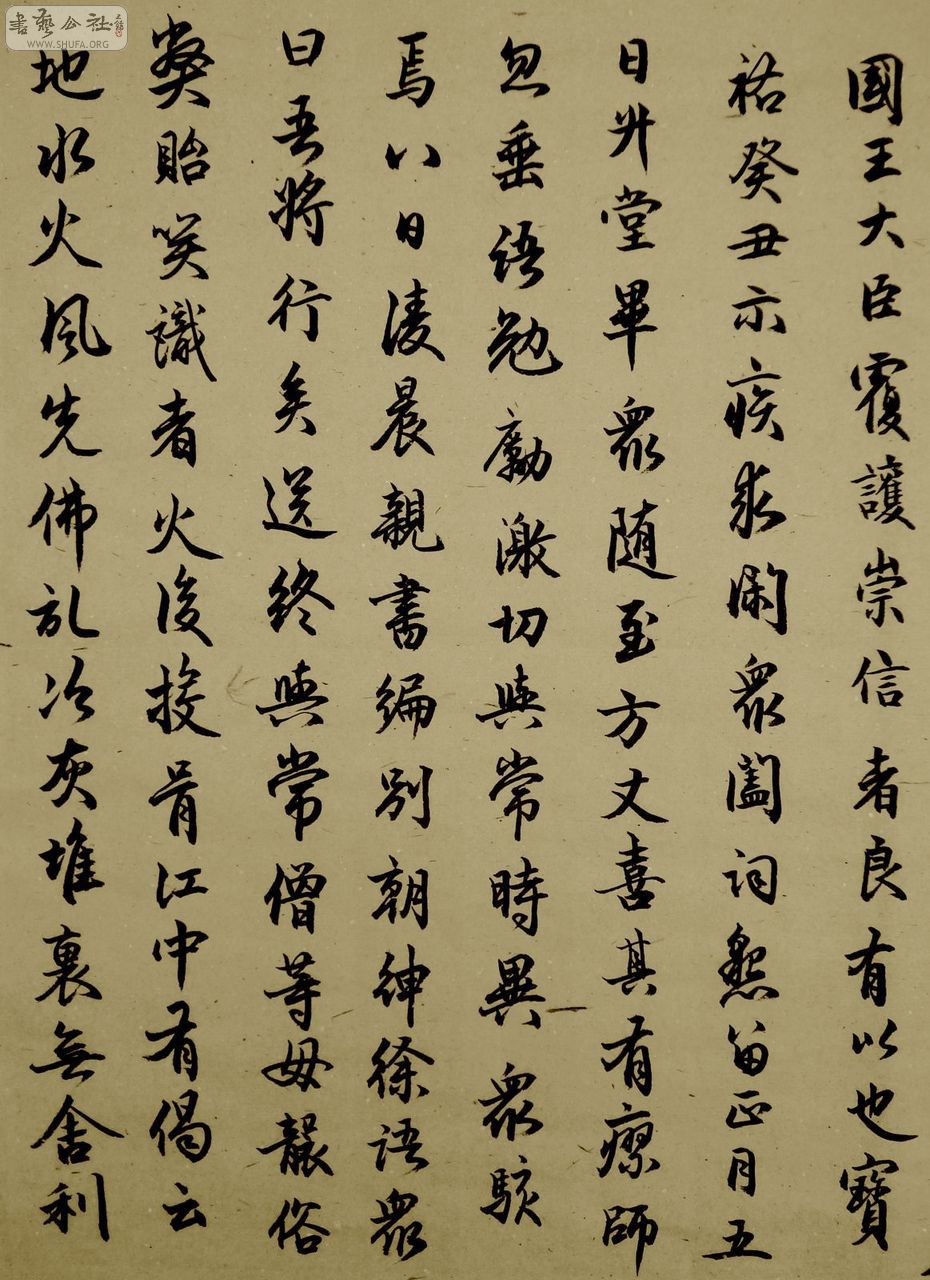 國王大臣覆護崇信者良有以也寶
祐癸丑示疾求閑眾闔詞懇留正月五
日升堂畢眾随至方丈喜其有瘳師
忽垂語勉勵激切與常時異眾駭
焉八日淩晨親書編別朝紳徐語眾
曰吾將行矣送終與常僧等毋襲俗
獘貽笑識者火後投骨江中有偈云
地水火風先佛記冷灰堆裏無舍利
書藝公社
WWW.SHUFA.ORG